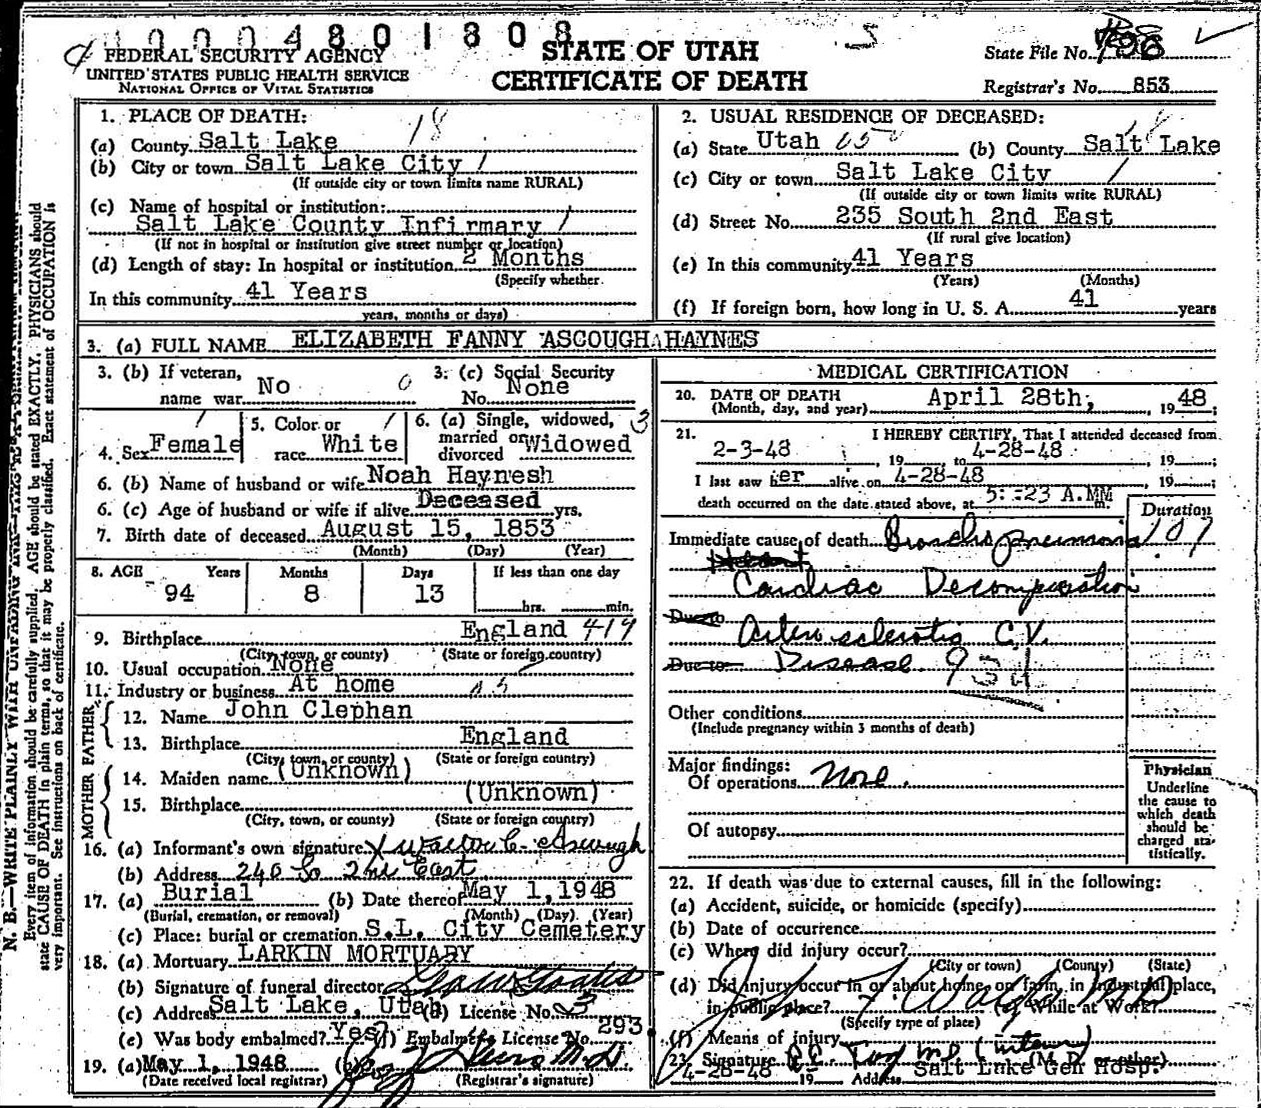 10004801808
FEDERAL SECURITY AGENCY
UNITED STATES PUBLIC HEALTH SERVICE
NATIONAL OFFICE OF VITAL STATISTICS
STATE OF UTAH
CERTIFICATE OF DEATH
State File No.
Registrar's No. 853
N. B.—WRITE PLAINLY WITH UNFADING
Every item of information should be carefully supplied. AGE should be stated EXACTLY. PHYSICIANS should
state CAUSE OF DEATH in plain terms, so that it may be properly classified. Exact statement of OCCUPATION is
very important. See instructions on back of certificate.
1. PLACE OF DEATH: 18
(a) County Salt Lake
(b) City or town Salt Lake City
(If outside city or town limits name RURAL)
(c) Name of hospital or institution:
Salt Lake County Infirmary
(If not in hospital or institution give street number or location)
(d) Length of stay: In hospital or institution 2 Months
(Specify whether
In this community 41 Years
years, months or days)
2. USUAL RESIDENCE OF DECEASED:
(a) State Utah (b) County Salt Lake
(c) City or town Salt Lake City
(If outside city or town limits write RURAL)
(d) Street No. 235 South 2nd East
(If rural give location)
(e) In this community 41 Years
(Years) (Months)
(f) If foreign born, how long in U. S. A. 41 years
3. (a) FULL NAME ELIZABETH FANNY ASCOUGH HAYNES
3. (b) If veteran, name war No 0
3. (c) Social Security No. None
4. Sex Female
5. Color or race White
6. (a) Single, widowed, married or divorced Widowed 3
6. (b) Name of husband or wife Noah Haynesh
6. (c) Age of husband or wife if alive Deceased yrs.
7. Birth date of deceased August 15, 1853
(Month) (Day) (Year)
8. AGE Years Months Days If less than one day
94 8 13 hrs. min.
9. Birthplace England 419
(City, town, or county) (State or foreign country)
10. Usual occupation None
11. Industry or business At home
FATHER
12. Name John Clephan
13. Birthplace England
(City, town, or county) (State or foreign country)
MOTHER
14. Maiden name (Unknown)
15. Birthplace (Unknown)
(City, town, or county) (State or foreign country)
16. (a) Informant's own signature
(b) Address 240 So 2nd East
17. (a) Burial (b) Date thereof May 1,1948
(Burial, cremation, or removal) (Month) (Day) (Year)
(c) Place: burial or cremation S.L. City Cemetery
18. (a) Mortuary LARKIN MORTUARY
(b) Signature of funeral director
(c) Address Salt Lake, Utah (d) License No.
(e) Was body embalmed? Yes (f) Embalmer's License No. 293
19. (a) May 1, 1948 (b)
(Date received local registrar) (Registrar's signature)
MEDICAL CERTIFICATION
20. DATE OF DEATH April 28th, 1948;
(Month, day, and year)
21. I HEREBY CERTIFY, That I attended deceased from
2-3-48, 19 to 4-28-48, 19;
I last saw her alive on 4-28-48, 19;
death occurred on the date stated above, at 5:23 A.M m.
Duration
Immediate cause of death Bronchopneumonia 107
Cardiac Decompensation
Due to Arteriosclerotic C.V.
Due to Disease 93d
Other conditions
(Include pregnancy within 3 months of death)
Major findings:
Of operations None.
Of autopsy
Physician
Underline the cause to which death should be charged statistically.
22. If death was due to external causes, fill in the following:
(a) Accident, suicide, or homicide (specify)
(b) Date of occurrence
(c) Where did injury occur?
(City or town) (County) (State)
(d) Did injury occur in or about home, on farm, in industrial place,
in public place? (e) While at Work?
(Specify type of place)
(f) Means of injury
23. Signature MD (intern) (M. D. or other)
4-28-48 19 Address Salt Lake Gen Hosp.